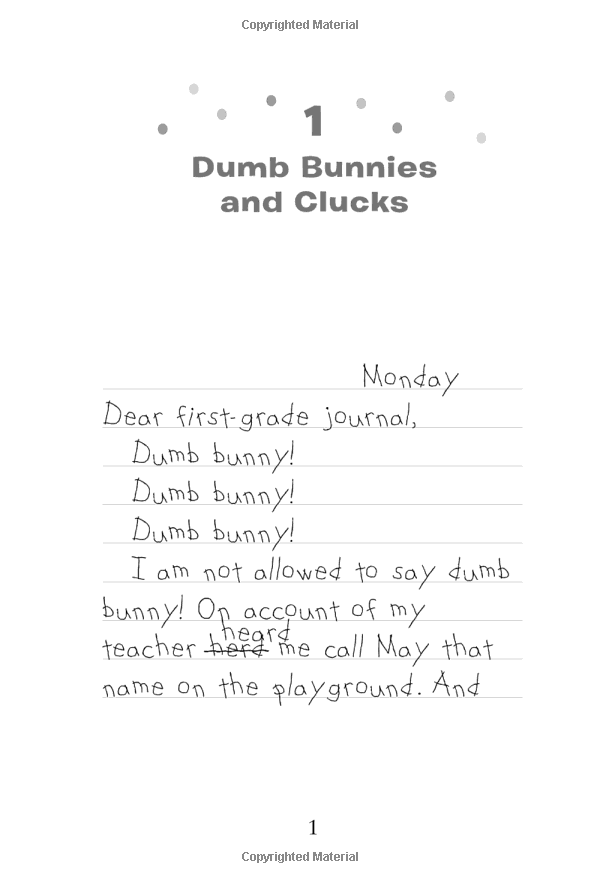 Copyrighted Material
1
Dumb Bunnies
and Clucks
Monday
Dear first-grade journal,
Dumb bunny!
Dumb bunny!
Dumb bunny!
I am not allowed to say dumb
bunny! On account of my
heard
teacher herd me call May that
name on the playground. And
1
Copyrighted Material